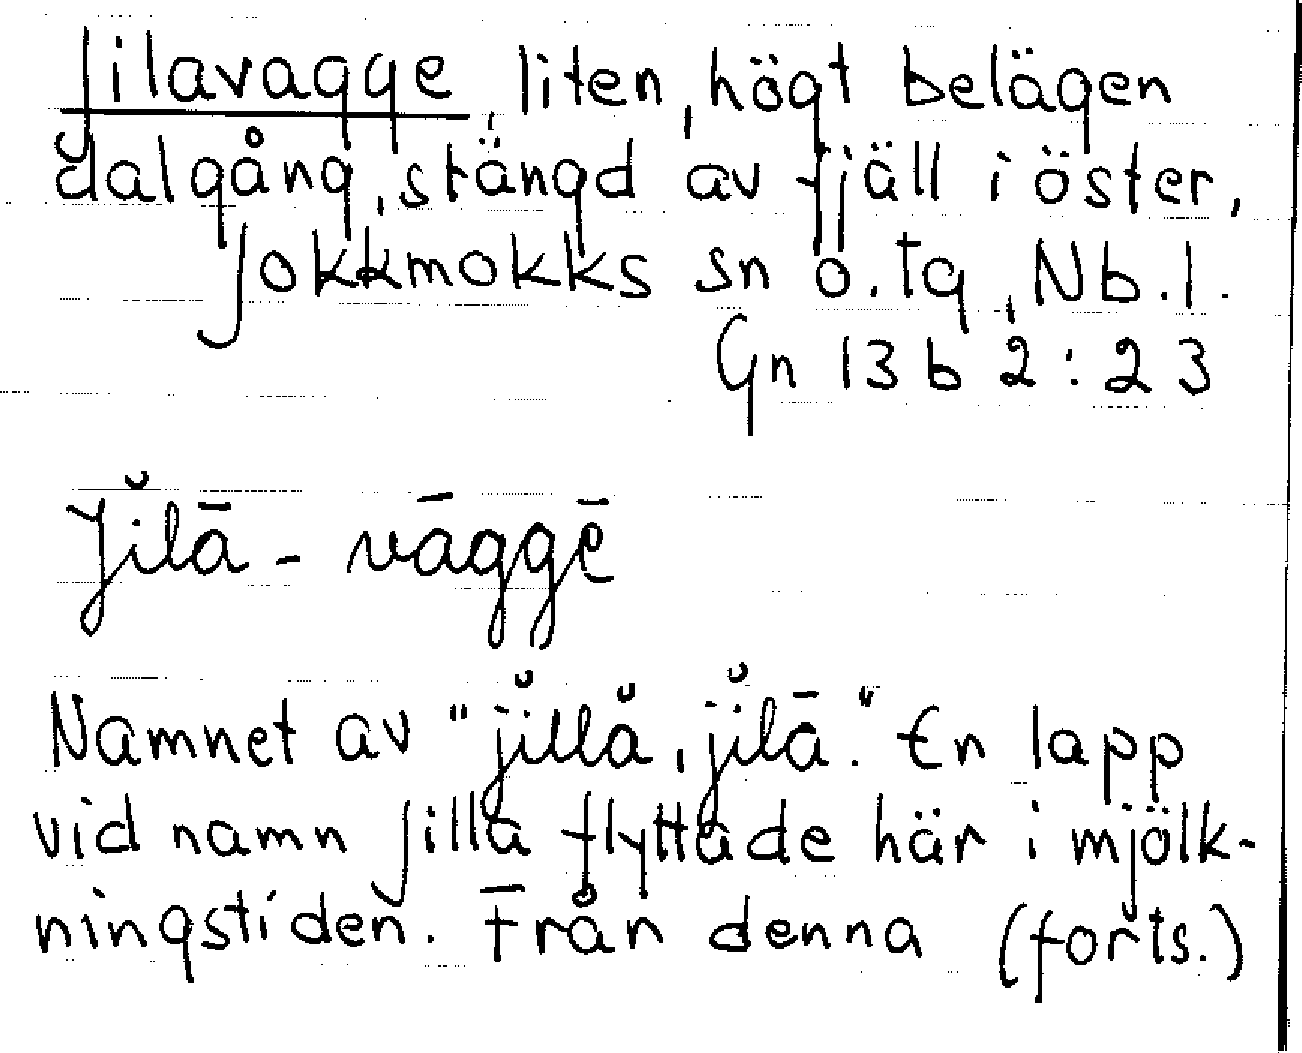 Jilavagge, liten, högt belägen
dalgång, stängd av fjäll i öster,
Jokkmokks sn ö. tg, Nb. l.
Gn 13 b 2:23
Jĭlā - vāggē
Namnet av "jĭllă, jĭlā." En lapp
vid namn Jilla flyttade här i mjölk-
ningstiden. Från denna (forts.)